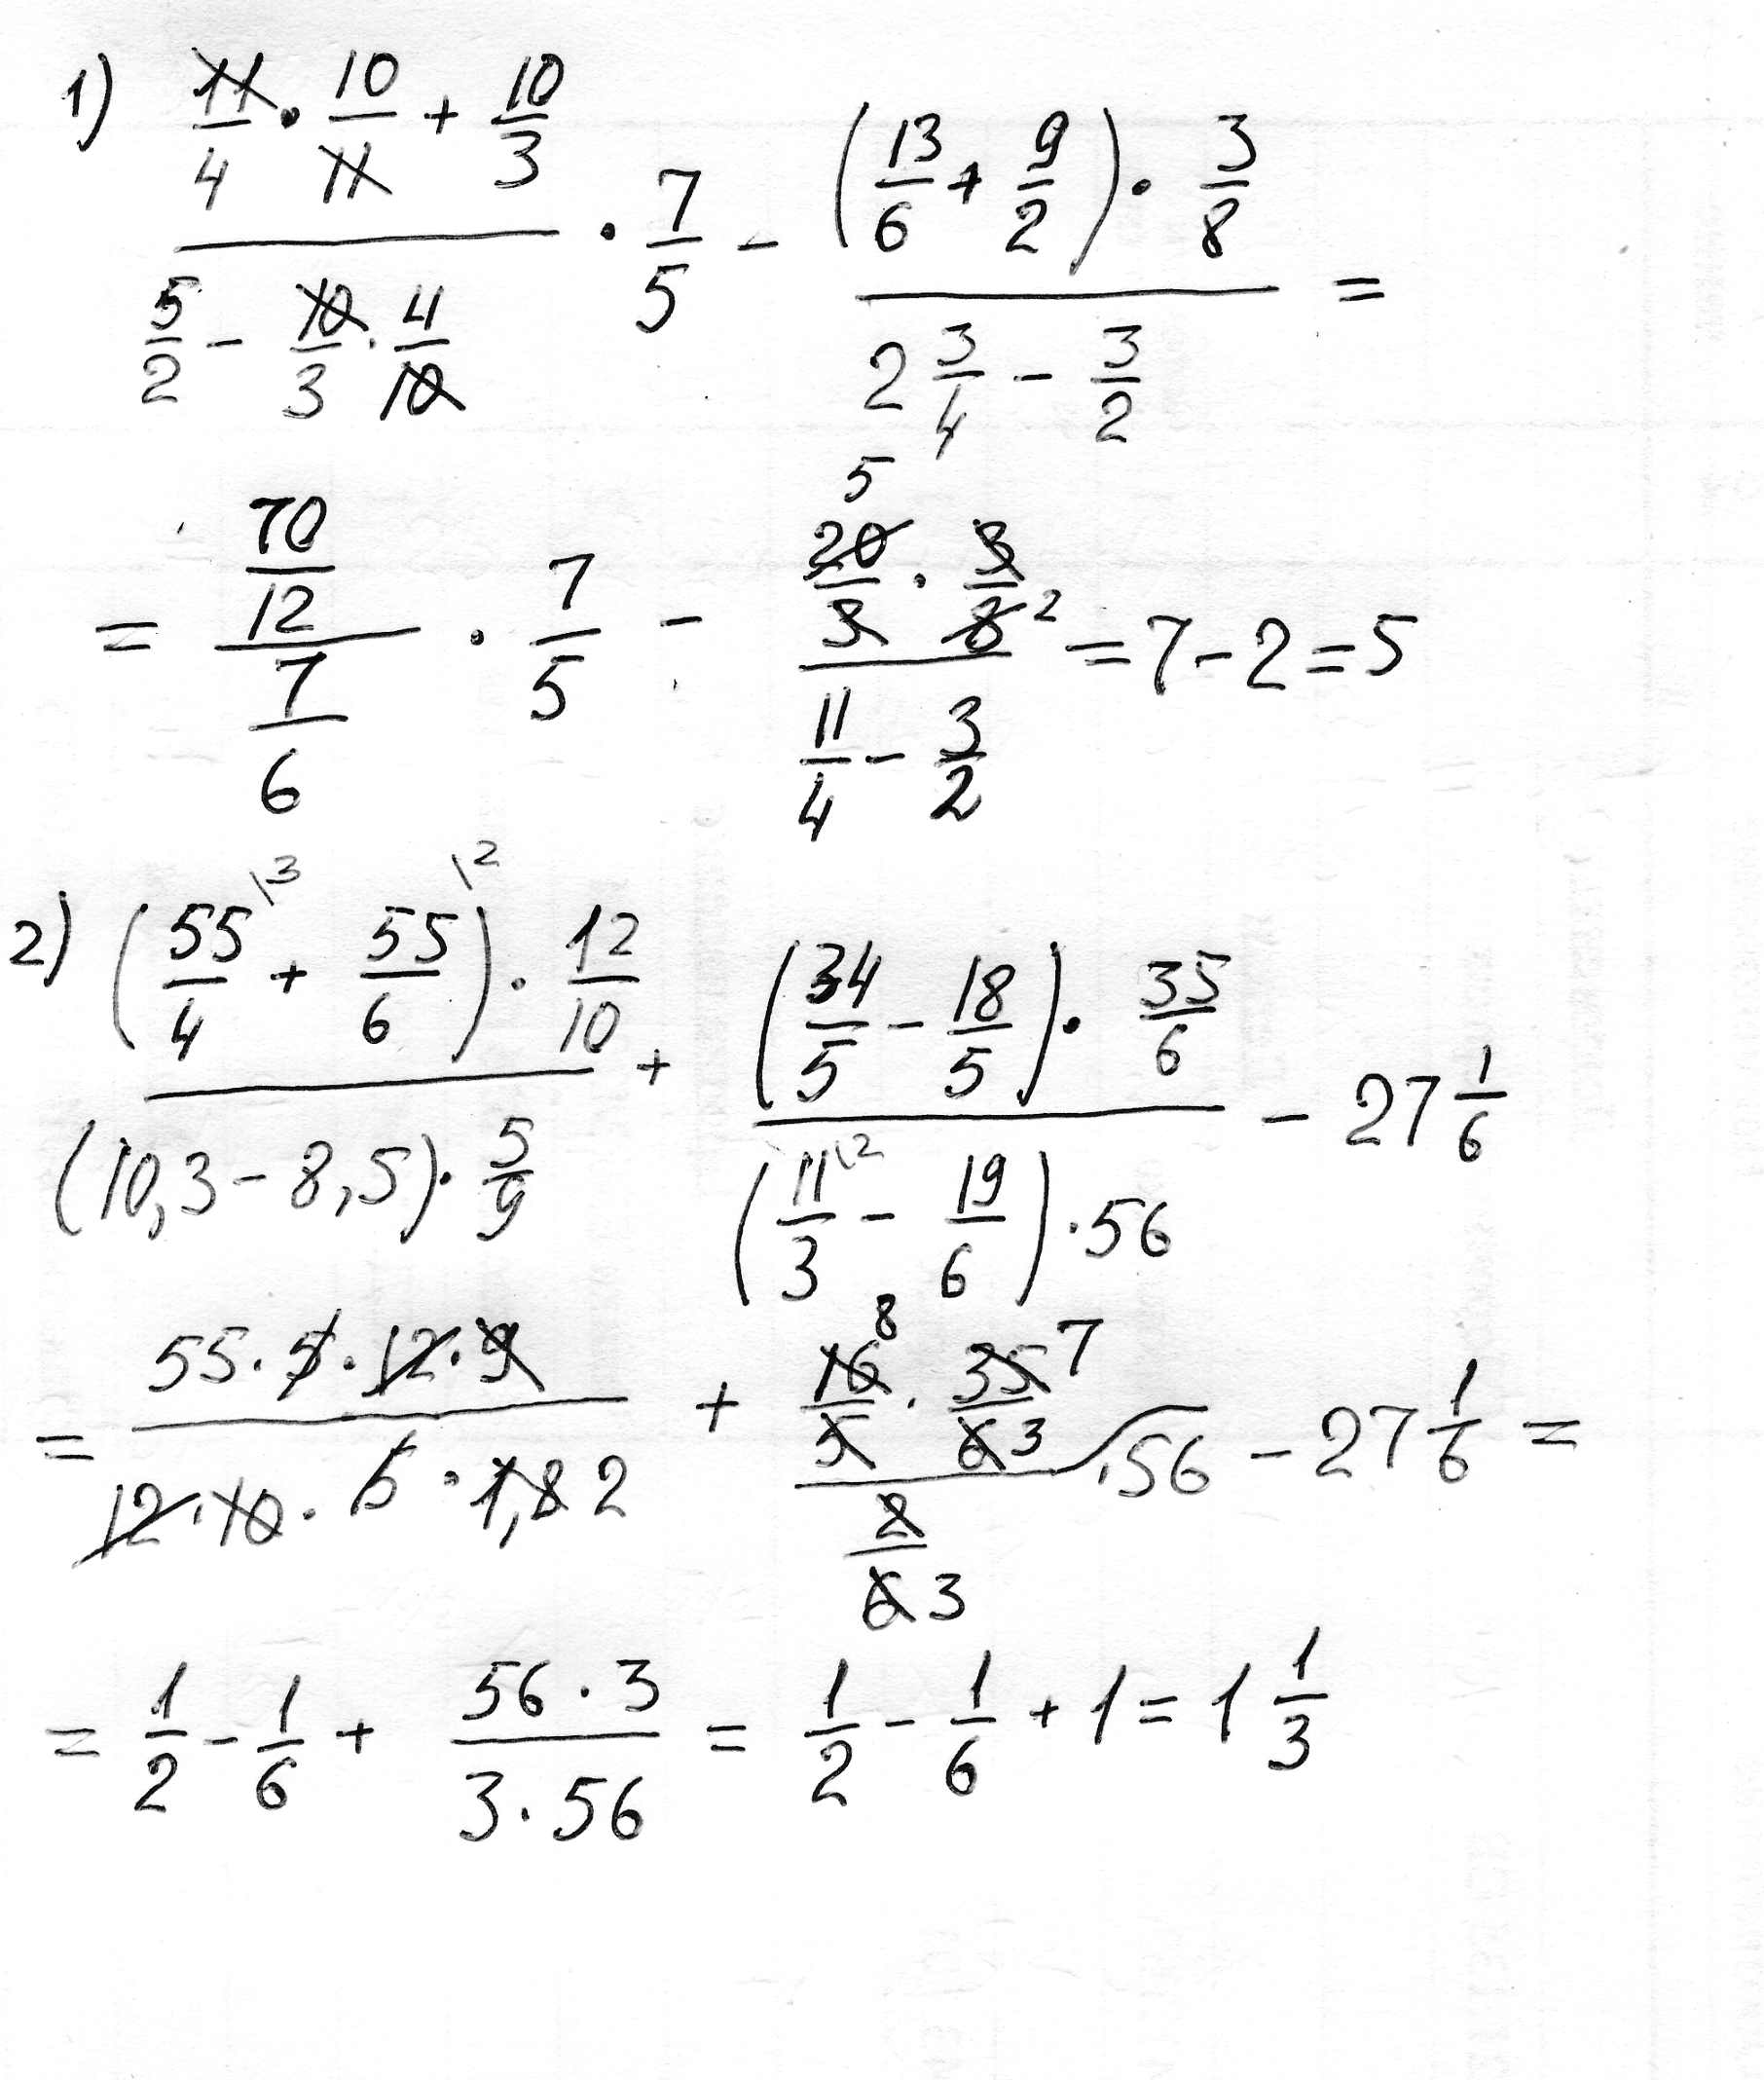 1) (11/4 · 10/11 + 10/3) / (5/2 − 10/3 · 4/10) · 7/5 − ((13/6 + 9/2) · 3/8) / (2 3/4 − 3/2) =
= (70/12) / (7/6) · 7/5 − (20/3 · 3/8) / (11/4 − 3/2) = 7 − 2 = 5
2) ((55/4 + 55/6) · 12/10) / ((10,3 − 8,5) · 5/9) + ((34/5 − 18/5) · 35/6) / ((11/3 − 19/6) · 56) − 27 1/6
= (55 · 5 · 12 · 9) / (12 · 10 · 5 · 1,8 2) + (16/5 · 35/6) / (2/6 3 · 56) − 27 1/6 =
= 1/2 − 1/6 + (56 · 3) / (3 · 56) = 1/2 − 1/6 + 1 = 1 1/3